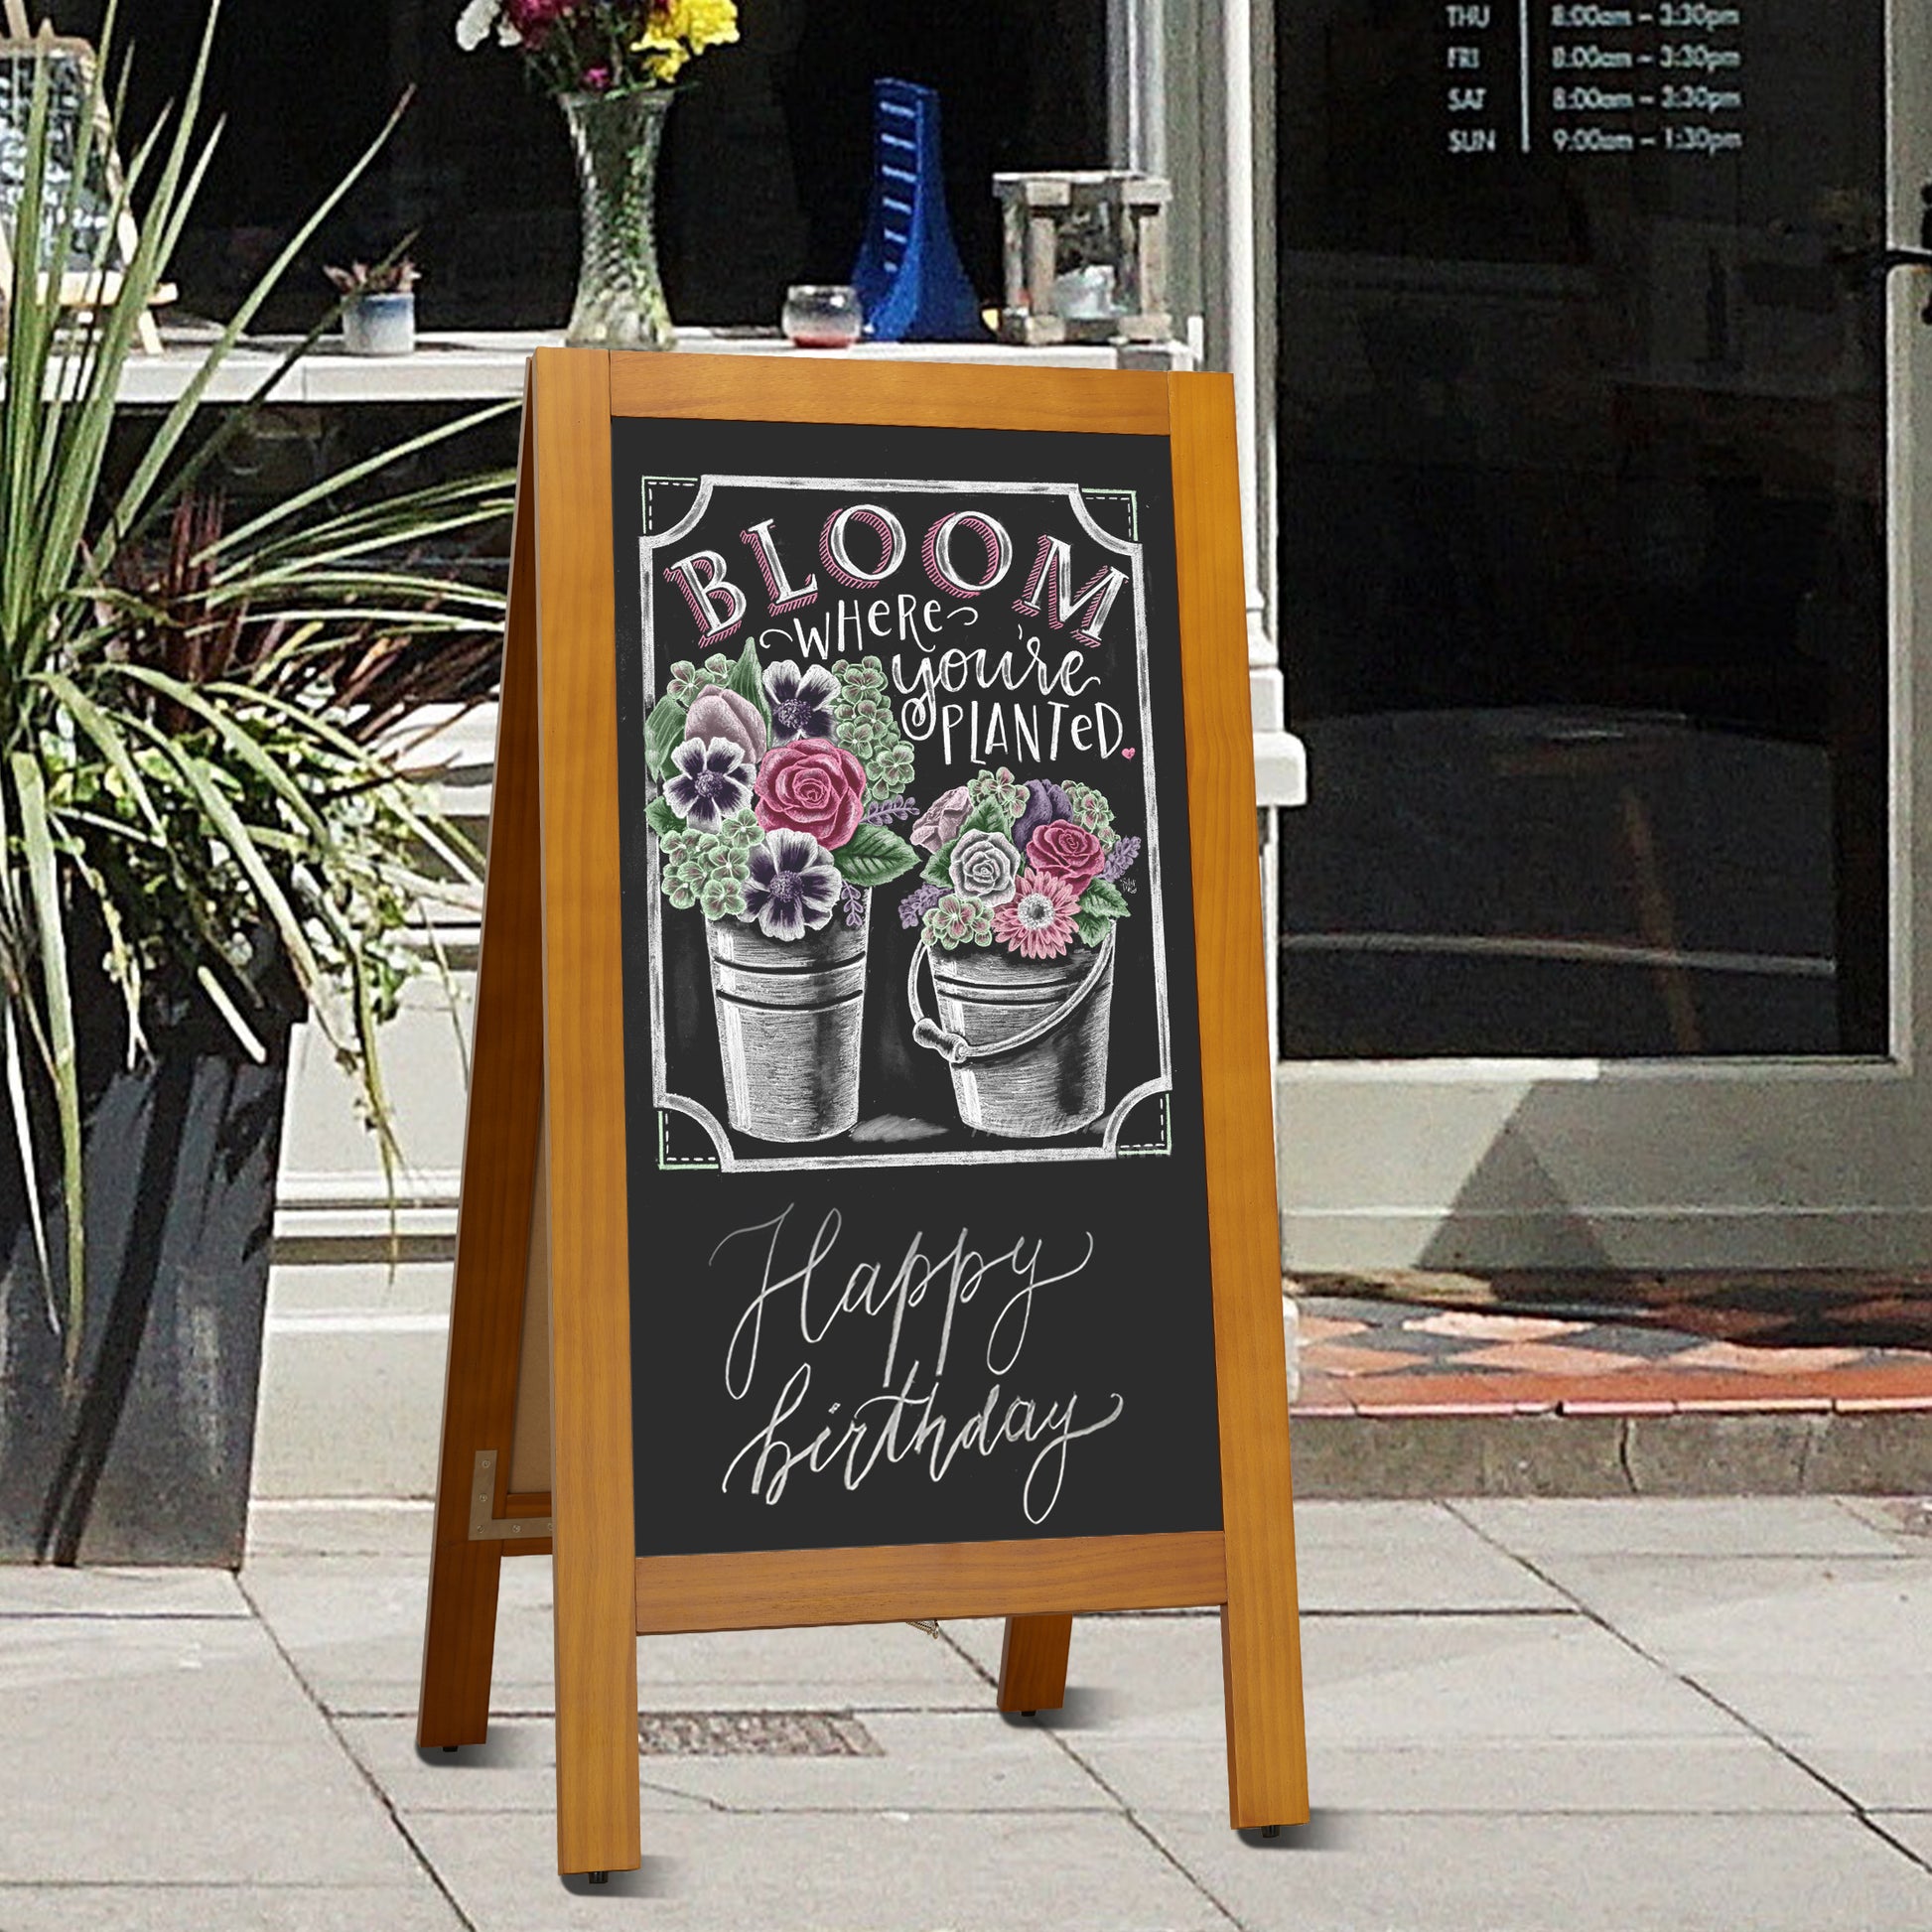 THU 8:00am – 3:30pm
FRI 8:00am – 3:30pm
SAT 8:00am – 3:30pm
SUN 9:00am – 1:30pm
BLOOM
WHERE
you're
PLANTED
Happy
birthday